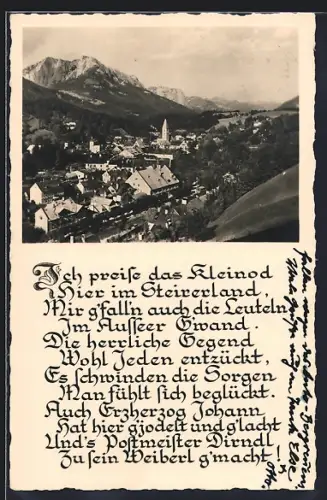 Ich preise das Kleinod
Hier im Steirerland,
Mir g'fall'n auch die Leuteln
Im Ausseer Gwand.
Die herrliche Gegend
Wohl Jeden entzückt,
Es schwinden die Sorgen
Man fühlt sich beglückt.
Auch Erzherzog Johann
Hat hier gjodelt und g'lacht
Und's Postmeister Dirndl
Zu sein Weiberl g'macht!